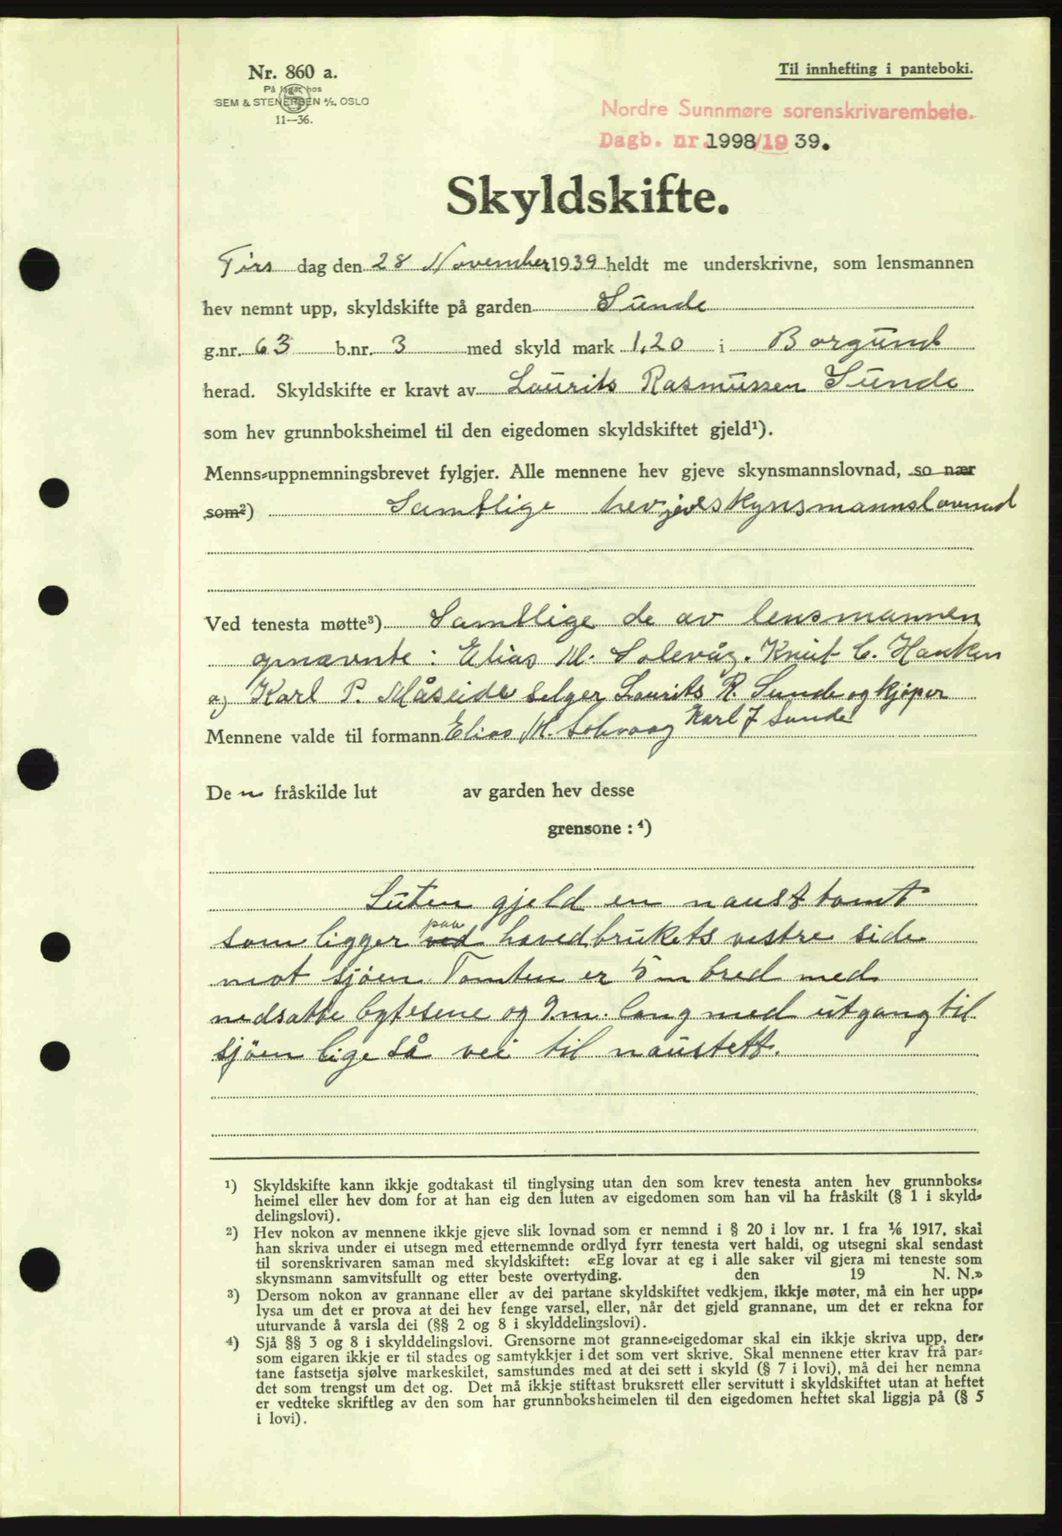 Nr. 860 a.
På lager hos
SEM & STENERSEN A/S, OSLO
11—36.
Til innhefting i panteboki.
Nordre Sunnmøre sorenskrivarembete.
Dagb. nr. 1998/19 39.
Skyldskifte.
Tirs dag den 28 November 1939 heldt me underskrivne, som lensmannen
hev nemnt upp, skyldskifte på garden Sunde
g.nr. 63 b.nr. 3 med skyld mark 1,20 i Borgund
herad. Skyldskifte er kravt av Laurits Rasmussen Sunde
som hev grunnboksheimel til den eigedomen skyldskiftet gjeld¹).
Menns-uppnemningsbrevet fylgjer. Alle mennene hev gjeve skynsmannslovnad, so nær
som²) Samtlige hev jev skynsmannslovnad
Ved tenesta møtte³) Samtlige de av lensmannen
opnævnte: Elias M. Solevåg. Knut C. Hauken
og Karl P. Måseide Selger Laurits R. Sunde og kjøper
Karl J Sunde
Mennene valde til formann Elias M. Solevaag
De n fråskilde lut av garden hev desse
grensone: ⁴)
Luten gjeld en nausttomt
som ligger ved paa hovedbrukets vestre side
mot sjøen Tomten er 5 m bred med
nedsatte bytesene og 9 m. lang med utgang til
sjøen lige så vei til naustett.
¹) Skyldskifte kann ikkje godtakast til tinglysing utan den som krev tenesta anten hev grunnboks-
heimel eller hev dom for at han eig den luten av eigedomen som han vil ha fråskilt (§ 1 i skyld-
delingslovi).
²) Hev nokon av mennene ikkje gjeve slik lovnad som er nemnd i § 20 i lov nr. 1 fra ⅙ 1917, skal
han skriva under ei utsegn med etternemnde ordlyd fyrr tenesta vert haldi, og utsegni skal sendast
til sorenskrivaren saman med skyldskiftet: «Eg lovar at eg i alle saker vil gjera mi teneste som
skynsmann samvitsfullt og etter beste overtyding. den 19 N. N.»
³) Dersom nokon av grannane eller av dei partane skyldskiftet vedkjem, ikkje møter, må ein her upp-
lysa um det er prova at dei hev fenge varsel, eller, når det gjeld grannane, um det er rekna for
uturvande å varsla dei (§§ 2 og 8 i skylddelingslovi).
⁴) Sjå §§ 3 og 8 i skylddelingslovi. Grensorne mot granne-eigedomar skal ein ikkje skriva upp, der-
som eigaren ikkje er til stades og samtykkjer i det som vert skrive. Skal mennene etter krav frå par-
tane fastsetja sjølve markeskilet, samstundes med at dei sett i skyld (§ 7 i lovi), må dei her nemna
det som trengst um det og. Det må ikkje stiftast bruksrett eller servitutt i skyldskiftet utan at heftet
er vedteke skriftleg av den som har grunnboksheimelen til den eigedomen heftet skal liggja på (§ 5
i lovi).